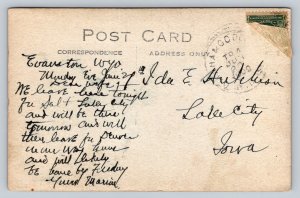 POST CARD
CORRESPONDENCE
ADDRESS ONLY
Evanston Wyo
Monday Eve Jan 29
Dear wife
We leave here tonight
for Salt Lake City
and will be there
tomorrow and will
then leave for Denver
on our way home
and will likely
be home by Friday
Yours Marion
Ida E Hutchison
Lake City
Iowa